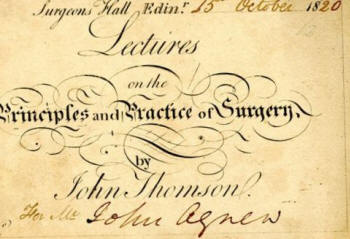 Surgeons Hall Edinr. 15 October 1820
Lectures
on the
Principles and Practice of Surgery.
by
John Thomson.
For Mr. John Agnew